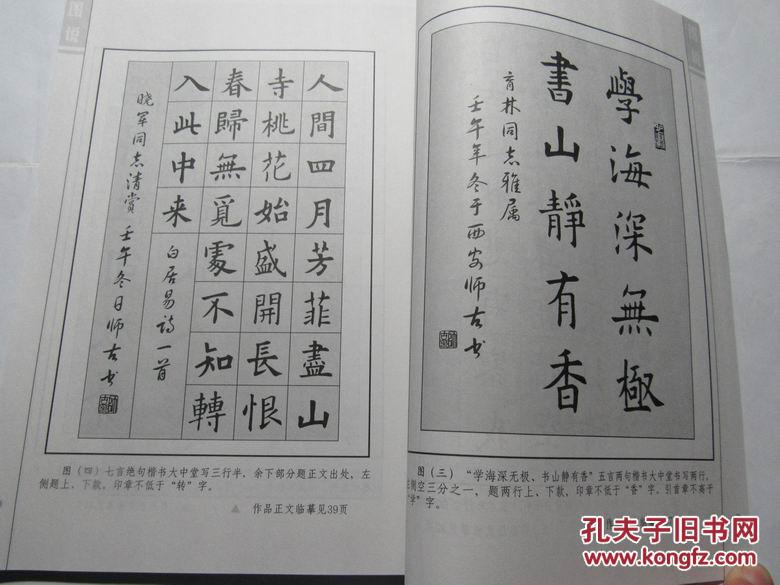 图说
人間四月芳菲盡山
寺桃花始盛開長恨
春歸無覓處不知轉
入此中来
白居易诗一首
晓军同志清赏 壬午冬日师古书
图(四) 七言绝句楷书大中堂写三行半,余下部分题正文出处,左
侧题上、下款,印章不低于“转”字。
作品正文临摹见39页
學海深無極
書山靜有香
育林同志雅属
壬午年冬于西安师古书
图(三) “学海深无极,书山静有香”五言两句楷书大中堂书写两行,
侧空三分之一,题两行上、下款,印章不低于“香”字,引首章不高于
“学”字。
孔夫子旧书网